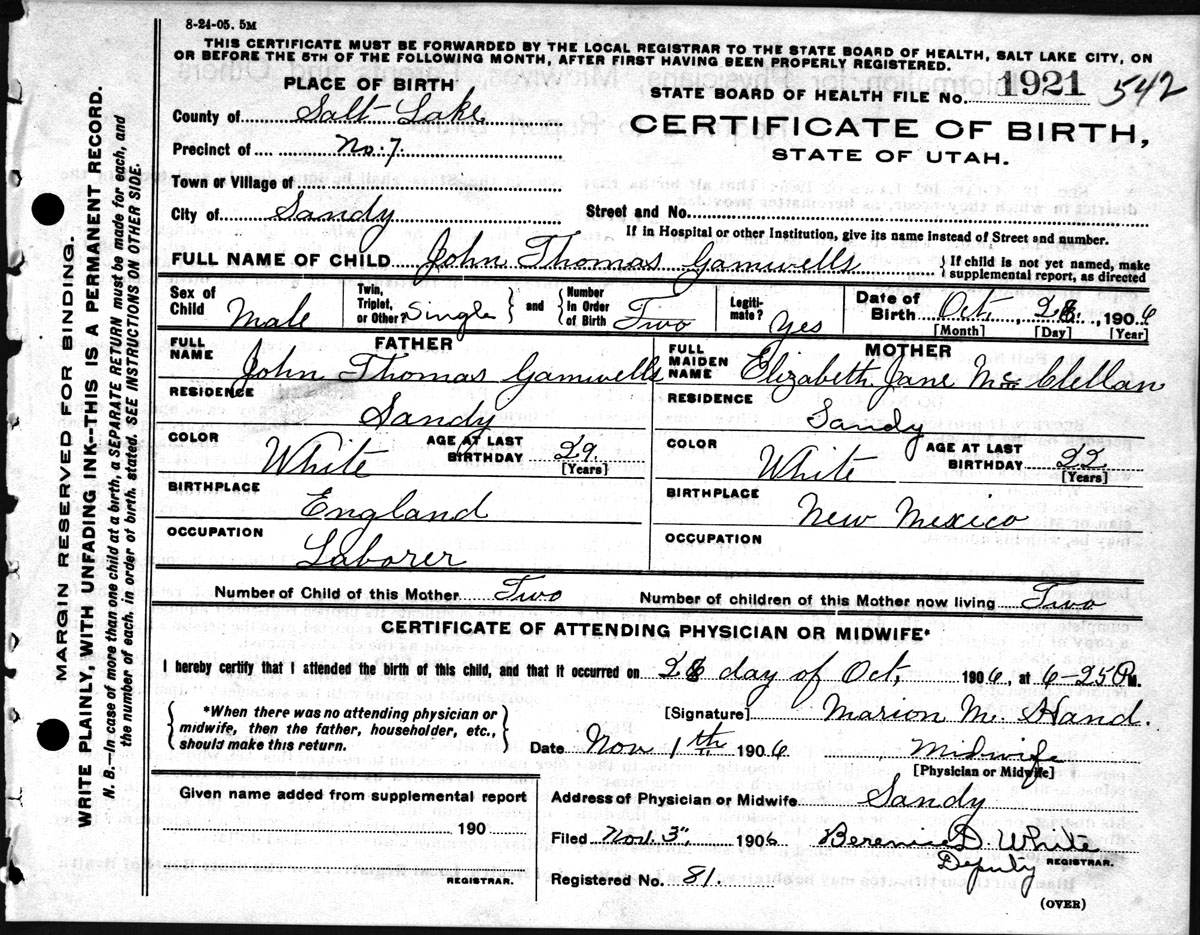 8-24-05. 5M
THIS CERTIFICATE MUST BE FORWARDED BY THE LOCAL REGISTRAR TO THE STATE BOARD OF HEALTH, SALT LAKE CITY, ON
OR BEFORE THE 5TH OF THE FOLLOWING MONTH, AFTER FIRST HAVING BEEN PROPERLY REGISTERED.
PLACE OF BIRTH
STATE BOARD OF HEALTH FILE NO. 1921 542
County of Salt Lake.
CERTIFICATE OF BIRTH,
Precinct of No. 7.
STATE OF UTAH.
Town or Village of
City of Sandy
Street and No.
If in Hospital or other Institution, give its name instead of Street and number.
FULL NAME OF CHILD John Thomas Gamwells
{ If child is not yet named, make
supplemental report, as directed
Sex of Child Male
Twin, Triplet, or Other? Single } and { Number in Order of Birth Two
Legiti-mate? Yes
Date of Birth Oct. , , 1906
[Month] [Day] [Year]
FATHER
FULL NAME John Thomas Gamwells
RESIDENCE Sandy
COLOR White AGE AT LAST BIRTHDAY 29. [Years]
BIRTHPLACE England
OCCUPATION Laborer
MOTHER
FULL MAIDEN NAME Elizabeth Jane McClellan
RESIDENCE Sandy
COLOR White AGE AT LAST BIRTHDAY 22 [Years]
BIRTHPLACE New Mexico
OCCUPATION
Number of Child of this Mother Two Number of children of this Mother now living Two
CERTIFICATE OF ATTENDING PHYSICIAN OR MIDWIFE*
I hereby certify that I attended the birth of this child, and that it occurred on day of Oct, 1906, at 6-25 P M.
{ *When there was no attending physician or
midwife, then the father, householder, etc.,
should make this return. }
[Signature] Marion M. Hand.
Date Nov 1th 1906 Midwife
[Physician or Midwife]
Given name added from supplemental report
190
REGISTRAR.
Address of Physician or Midwife Sandy
Filed Nov. 3", 1906 Berenice D. White
Deputy REGISTRAR.
Registered No. 81.
(OVER)
MARGIN RESERVED FOR BINDING.
WRITE PLAINLY, WITH UNFADING INK--THIS IS A PERMANENT RECORD.
N. B.--In case of more than one child at a birth, a SEPARATE RETURN must be made for each, and
the number of each, in order of birth, stated. SEE INSTRUCTIONS ON OTHER SIDE.